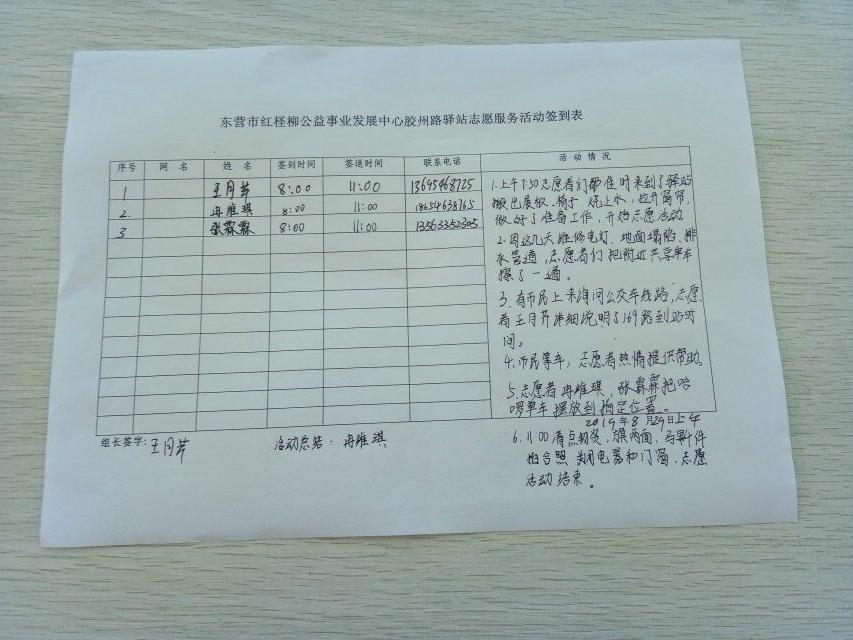 东营市红柽柳公益事业发展中心胶州路驿站志愿服务活动签到表
序号 网名 姓名 签到时间 签退时间 联系电话 活动情况
1 王月芹 8:00 11:00 13695468725
2. 冉维琪 8:00 11:00 18654638765
3 张霖霖 8:00 11:00 13563352305
1.上午7:50志愿者们都准时来到了驿站
搬出展板、椅子、烧上水,拉开窗帘,
做好了准备工作,开始志愿活动
2.因这几天维修电灯、地面塌陷、排
水管道,志愿者们把附近共享单车
擦了一遍。
3.有市民上来询问公交车线路,志愿
者王月芹详细说明了169路到站时
间。
4.市民等车,志愿者热情提供帮助。
5.志愿者冉维琪,张霖霖把哈
啰单车摆放到指定位置。
2019年8月29日上午
6.11:00清点物资,旗两面,马甲件
拍合照 关闭电器和门窗,志愿
活动结束。
组长签字:王月芹 活动总结:冉维琪